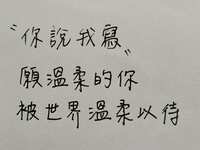 "你說我寫"
願溫柔的你
被世界溫柔以待